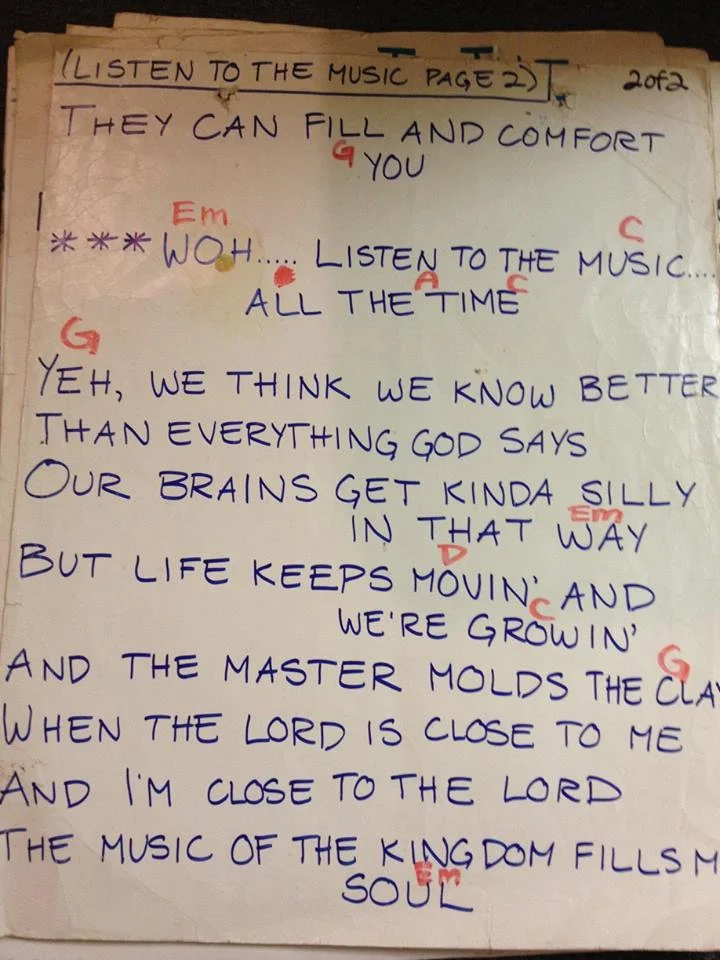 (LISTEN TO THE MUSIC PAGE 2) 2 of 2
THEY CAN FILL AND COMFORT
G
YOU
Em C
*** WOH..... LISTEN TO THE MUSIC....
A C
ALL THE TIME
G
YEH, WE THINK WE KNOW BETTER
THAN EVERYTHING GOD SAYS
OUR BRAINS GET KINDA SILLY
Em
IN THAT WAY
D
BUT LIFE KEEPS MOVIN' AND
C
WE'RE GROWIN'
G
AND THE MASTER MOLDS THE CLA
WHEN THE LORD IS CLOSE TO ME
AND I'M CLOSE TO THE LORD
THE MUSIC OF THE KINGDOM FILLS M
Em
SOUL